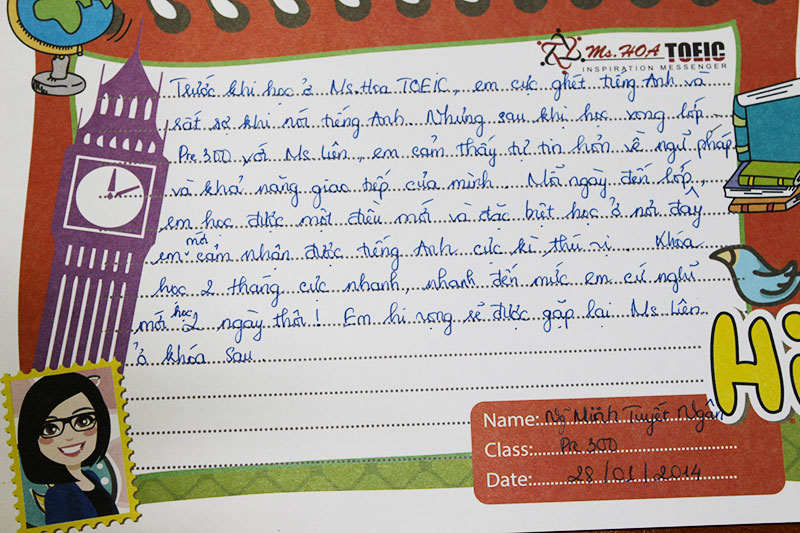 Ms. HOA TOEIC
INSPIRATION MESSENGER
Trước khi học ở Ms. Hoa TOEIC, em cực ghét tiếng Anh và
rất sợ khi nói tiếng Anh. Nhưng sau khi học xong lớp
Pre 300 với Ms Liên, em cảm thấy tự tin hơn về ngữ pháp
và khả năng giao tiếp của mình. Mỗi ngày đến lớp,
em học được một điều mới và đặc biệt học ở nơi đây
em mới cảm nhận được tiếng Anh cực kì thú vị. Khóa
học 2 tháng cực nhanh, nhanh đến mức em cứ nghĩ
mới học 2 ngày thôi! Em hi vọng sẽ được gặp lại Ms Liên
ở khóa sau
Hi
Name: Ng Minh Tuyết Ngân
Class: Pre 300
Date: 28/01/2014